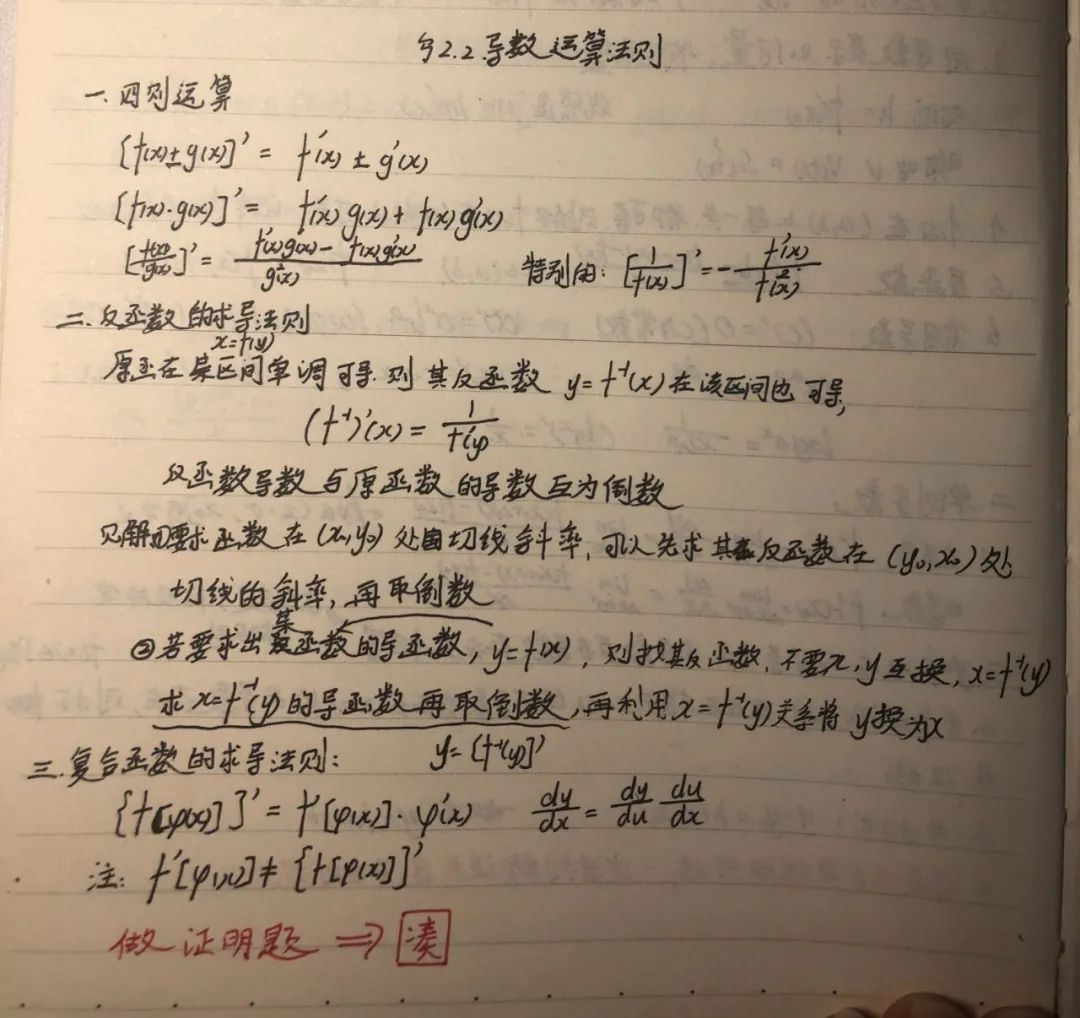 §2.2.导数运算法则
一.四则运算
[f(x)±g(x)]′ = f′(x) ± g′(x)
[f(x)·g(x)]′ = f′(x)g(x)+f(x)g′(x)
[f(x)/g(x)]′ = (f′(x)g(x)-f(x)g′(x))/g²(x) 特别的: [1/f(x)]′ = -f′(x)/f²(x)
二.反函数的求导法则
x=f(y)
原函在某区间单调可导.则其反函数 y=f⁻¹(x)在该区间也可导,
(f⁻¹)′(x) = 1/f′(y)
反函数导数与原函数的导数互为倒数
见解①要求函数在(x₀,y₀)处切线斜率,可以先求其反函数在(y₀,x₀)处
切线的斜率,再取倒数
②若要求出某函数的导函数, y=f(x), 则找其反函数,不要x,y互换, x=f⁻¹(y)
求x=f⁻¹(y)的导函数再取倒数,再利用x=f⁻¹(y)关系将y换为x
三.复合函数的求导法则: y=[f⁻¹(y)]′
{f[φ(x)]}′ = f′[φ(x)]·φ′(x) dy/dx = dy/du du/dx
注: f′[φ(x)] ≠ {f[φ(x)]}′
做证明题 ⇒ 凑